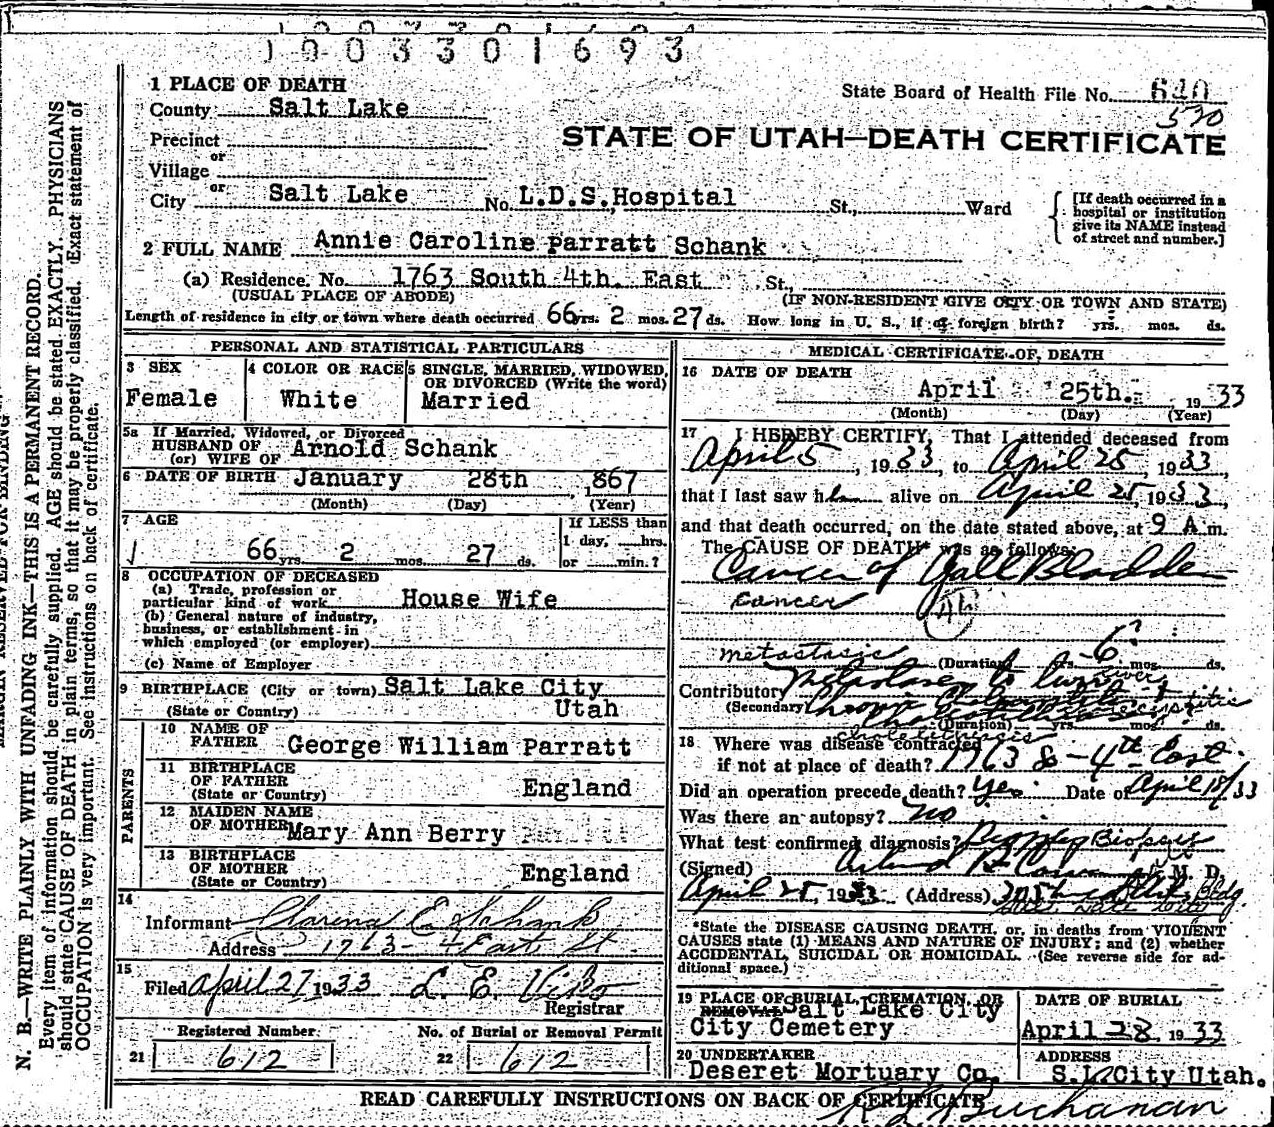 1003301693
1 PLACE OF DEATH
State Board of Health File No. 620
570
County Salt Lake
STATE OF UTAH—DEATH CERTIFICATE
Precinct
or
Village
or
City Salt Lake No. L.D.S. Hospital St., Ward
[If death occurred in a
hospital or institution
give its NAME instead
of street and number.]
2 FULL NAME Annie Caroline Parratt Schank
(a) Residence. No. 1763 South 4th. East St.,
(USUAL PLACE OF ABODE) (IF NON-RESIDENT GIVE CITY OR TOWN AND STATE)
Length of residence in city or town where death occurred 66 yrs. 2 mos. 27 ds. How long in U. S., if of foreign birth? yrs. mos. ds.
PERSONAL AND STATISTICAL PARTICULARS
3 SEX
Female
4 COLOR OR RACE
White
5 SINGLE, MARRIED, WIDOWED,
OR DIVORCED (Write the word)
Married
5a If Married, Widowed, or Divorced
HUSBAND OF
(or) WIFE OF Arnold Schank
6 DATE OF BIRTH January 28th 1867
(Month) (Day) (Year)
7 AGE
66 yrs. 2 mos. 27 ds.
If LESS than
1 day, hrs.
or min.?
8 OCCUPATION OF DECEASED
(a) Trade, profession or
particular kind of work House Wife
(b) General nature of industry,
business, or establishment in
which employed (or employer)
(c) Name of Employer
9 BIRTHPLACE (City or town) Salt Lake City
(State or Country) Utah
PARENTS
10 NAME OF
FATHER George William Parratt
11 BIRTHPLACE
OF FATHER England
(State or Country)
12 MAIDEN NAME
OF MOTHER Mary Ann Berry
13 BIRTHPLACE
OF MOTHER England
(State or Country)
14
Informant Clarence E. Schank
Address 1763-4 East St
15
Filed April 27 1933 L. E.
Registrar
Registered Number
21 612
No. of Burial or Removal Permit
22 612
MEDICAL CERTIFICATE OF DEATH
16 DATE OF DEATH
April 25th. 1933
(Month) (Day) (Year)
17 I HEREBY CERTIFY, That I attended deceased from
April 5, 1933, to April 25, 1933
that I last saw her alive on April 25, 1933,
and that death occurred, on the date stated above, at 9 A m.
The CAUSE OF DEATH* was as follows:
Cancer of Gall Bladder
cancer
46
metastasis (Duration) yrs. 6? mos. ds.
Contributory Metastases to liver
(Secondary) Chronic
(Duration) yrs. mos. ds.
cholelithiasis
18 Where was disease contracted
if not at place of death? 1763 So - 4th East.
Did an operation precede death? Yes. Date of April 18/33
Was there an autopsy? No
What test confirmed diagnosis? Biopsy
(Signed) M. D.
April 25, 1933 (Address) Bldg.
*State the DISEASE CAUSING DEATH, or, in deaths from VIOLENT
CAUSES state (1) MEANS AND NATURE OF INJURY; and (2) whether
ACCIDENTAL, SUICIDAL OR HOMICIDAL. (See reverse side for ad-
ditional space.)
19 PLACE OF BURIAL, CREMATION, OR
REMOVAL Salt Lake City
City Cemetery
DATE OF BURIAL
April 28, 1933
20 UNDERTAKER
Deseret Mortuary Co.
ADDRESS
S.L. City Utah.
READ CAREFULLY INSTRUCTIONS ON BACK OF CERTIFICATE
Buchanan
MARGIN RESERVED FOR BINDING
N. B.—WRITE PLAINLY WITH UNFADING INK—THIS IS A PERMANENT RECORD.
Every item of information should be carefully supplied. AGE should be stated EXACTLY. PHYSICIANS
should state CAUSE OF DEATH in plain terms, so that it may be properly classified. Exact statement of
OCCUPATION is very important. See instructions on back of certificate.